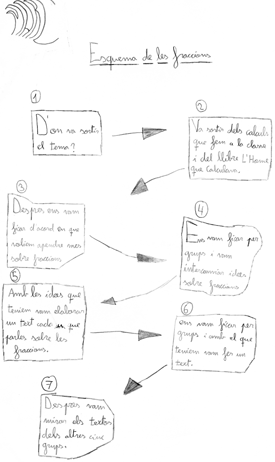 Esquema de les fraccions
1
D'on va sortir
el tema?
2
Va sortir dels calculs
que fem a la classe
i del llibre L'Home
que Calculava.
3
Despres ens vam
ficar d'acord en que
voliem apendre mes
sobre fraccions
4
Ens vam ficar per
grups i vam
intercanviar idees
sobre fraccions
5
Amb les idees que
teniem vam elaborar
un text cada un que
parles sobre les
fraccions.
6
vam ficar per
grups i amb el que
teniem vam fer un
text.
7
Despres vam
mirar els textos
dels altres cinc
grups.